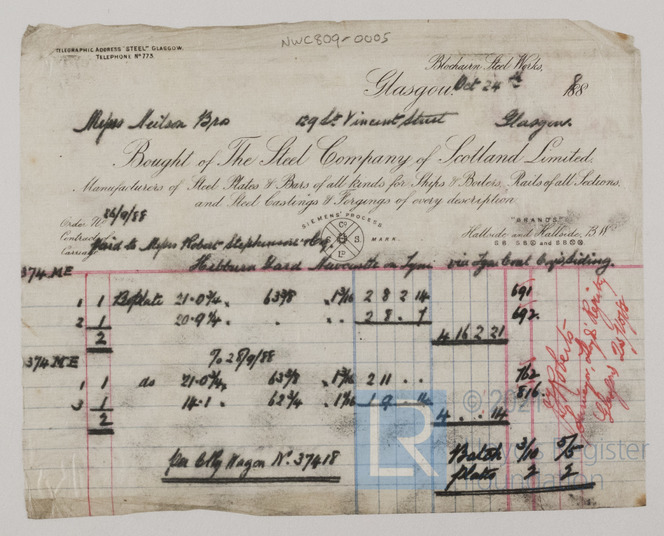 NWC809-0005
TELEGRAPHIC ADDRESS "STEEL" GLASGOW.
TELEPHONE Nº 773.
Blochairn Steel Works,
Glasgow, Oct 24th 1888
Messrs Neilson Bro 129 St Vincent Street Glasgow.
Bought of The Steel Company of Scotland Limited.
Manufacturers of Steel Plates & Bars of all kinds for Ships & Boilers, Rails of all Sections,
and Steel Castings & Forgings of every description
Order Nº 26/9/88
SIEMENS' PROCESS
MARK.
"BRANDS"
Contract
Hallside and Hallside, B W
Carriage paid to Messrs Robert Stephenson
Hebburn Yard Newcastle on Tyne via Tyne Coal Coy siding
374 ME
1 1 Bo plate 21.0¾ 63⅜ 1 3/16 2 8 2 14 691
2 1 20.9¾ 2 8 . 7 692
2 4 16 2 21
% 28/9/88
374 ME
1 1 do 21.0¾ 63⅜ 2 11 . . 762
3 1 14.1 62¾ 1 9 . 14 816
2 4 . . 14
per C Ry Wagon Nº 37418
Batch 3/10 5/5
plates 2 2
Roberts
Surveyor
© 2021
LR
Lloyd's Register
Foundation